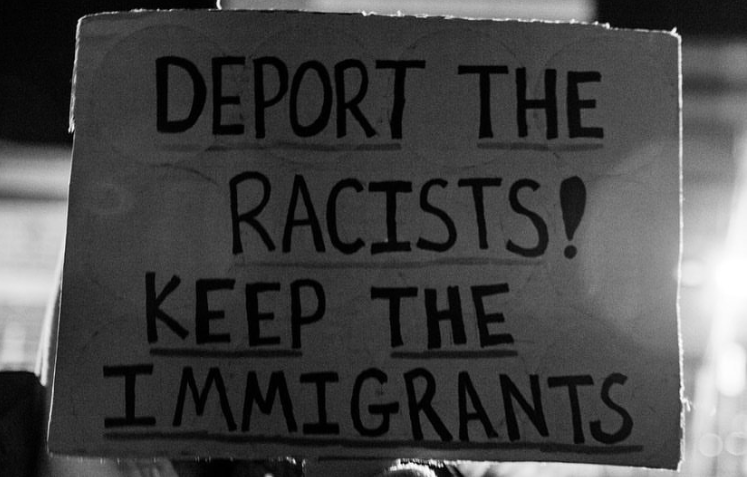 DEPORT THE
RACISTS!
KEEP THE
IMMIGRANTS